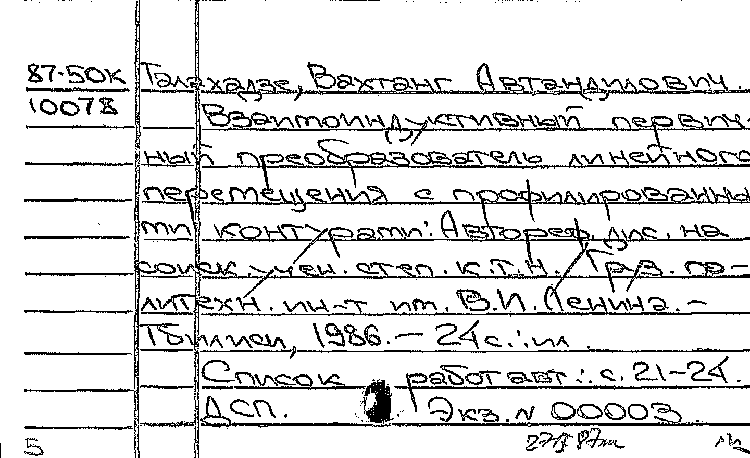 87-50К Талахадзе, Вахтанг Автандилович.
10078 Взаимоиндуктивный первич-
ный преобразователь линейного
перемещения с профилированны
ми контурами: Автореф. дис. на
соиск. учен. степ. к.т.н. Груз. по-
литехн. ин-т им. В.И. Ленина. -
Тбилиси, 1986. - 24с.: ил.
Список работ авт.: с. 21-24.
ДСП. Экз. N 00003
5